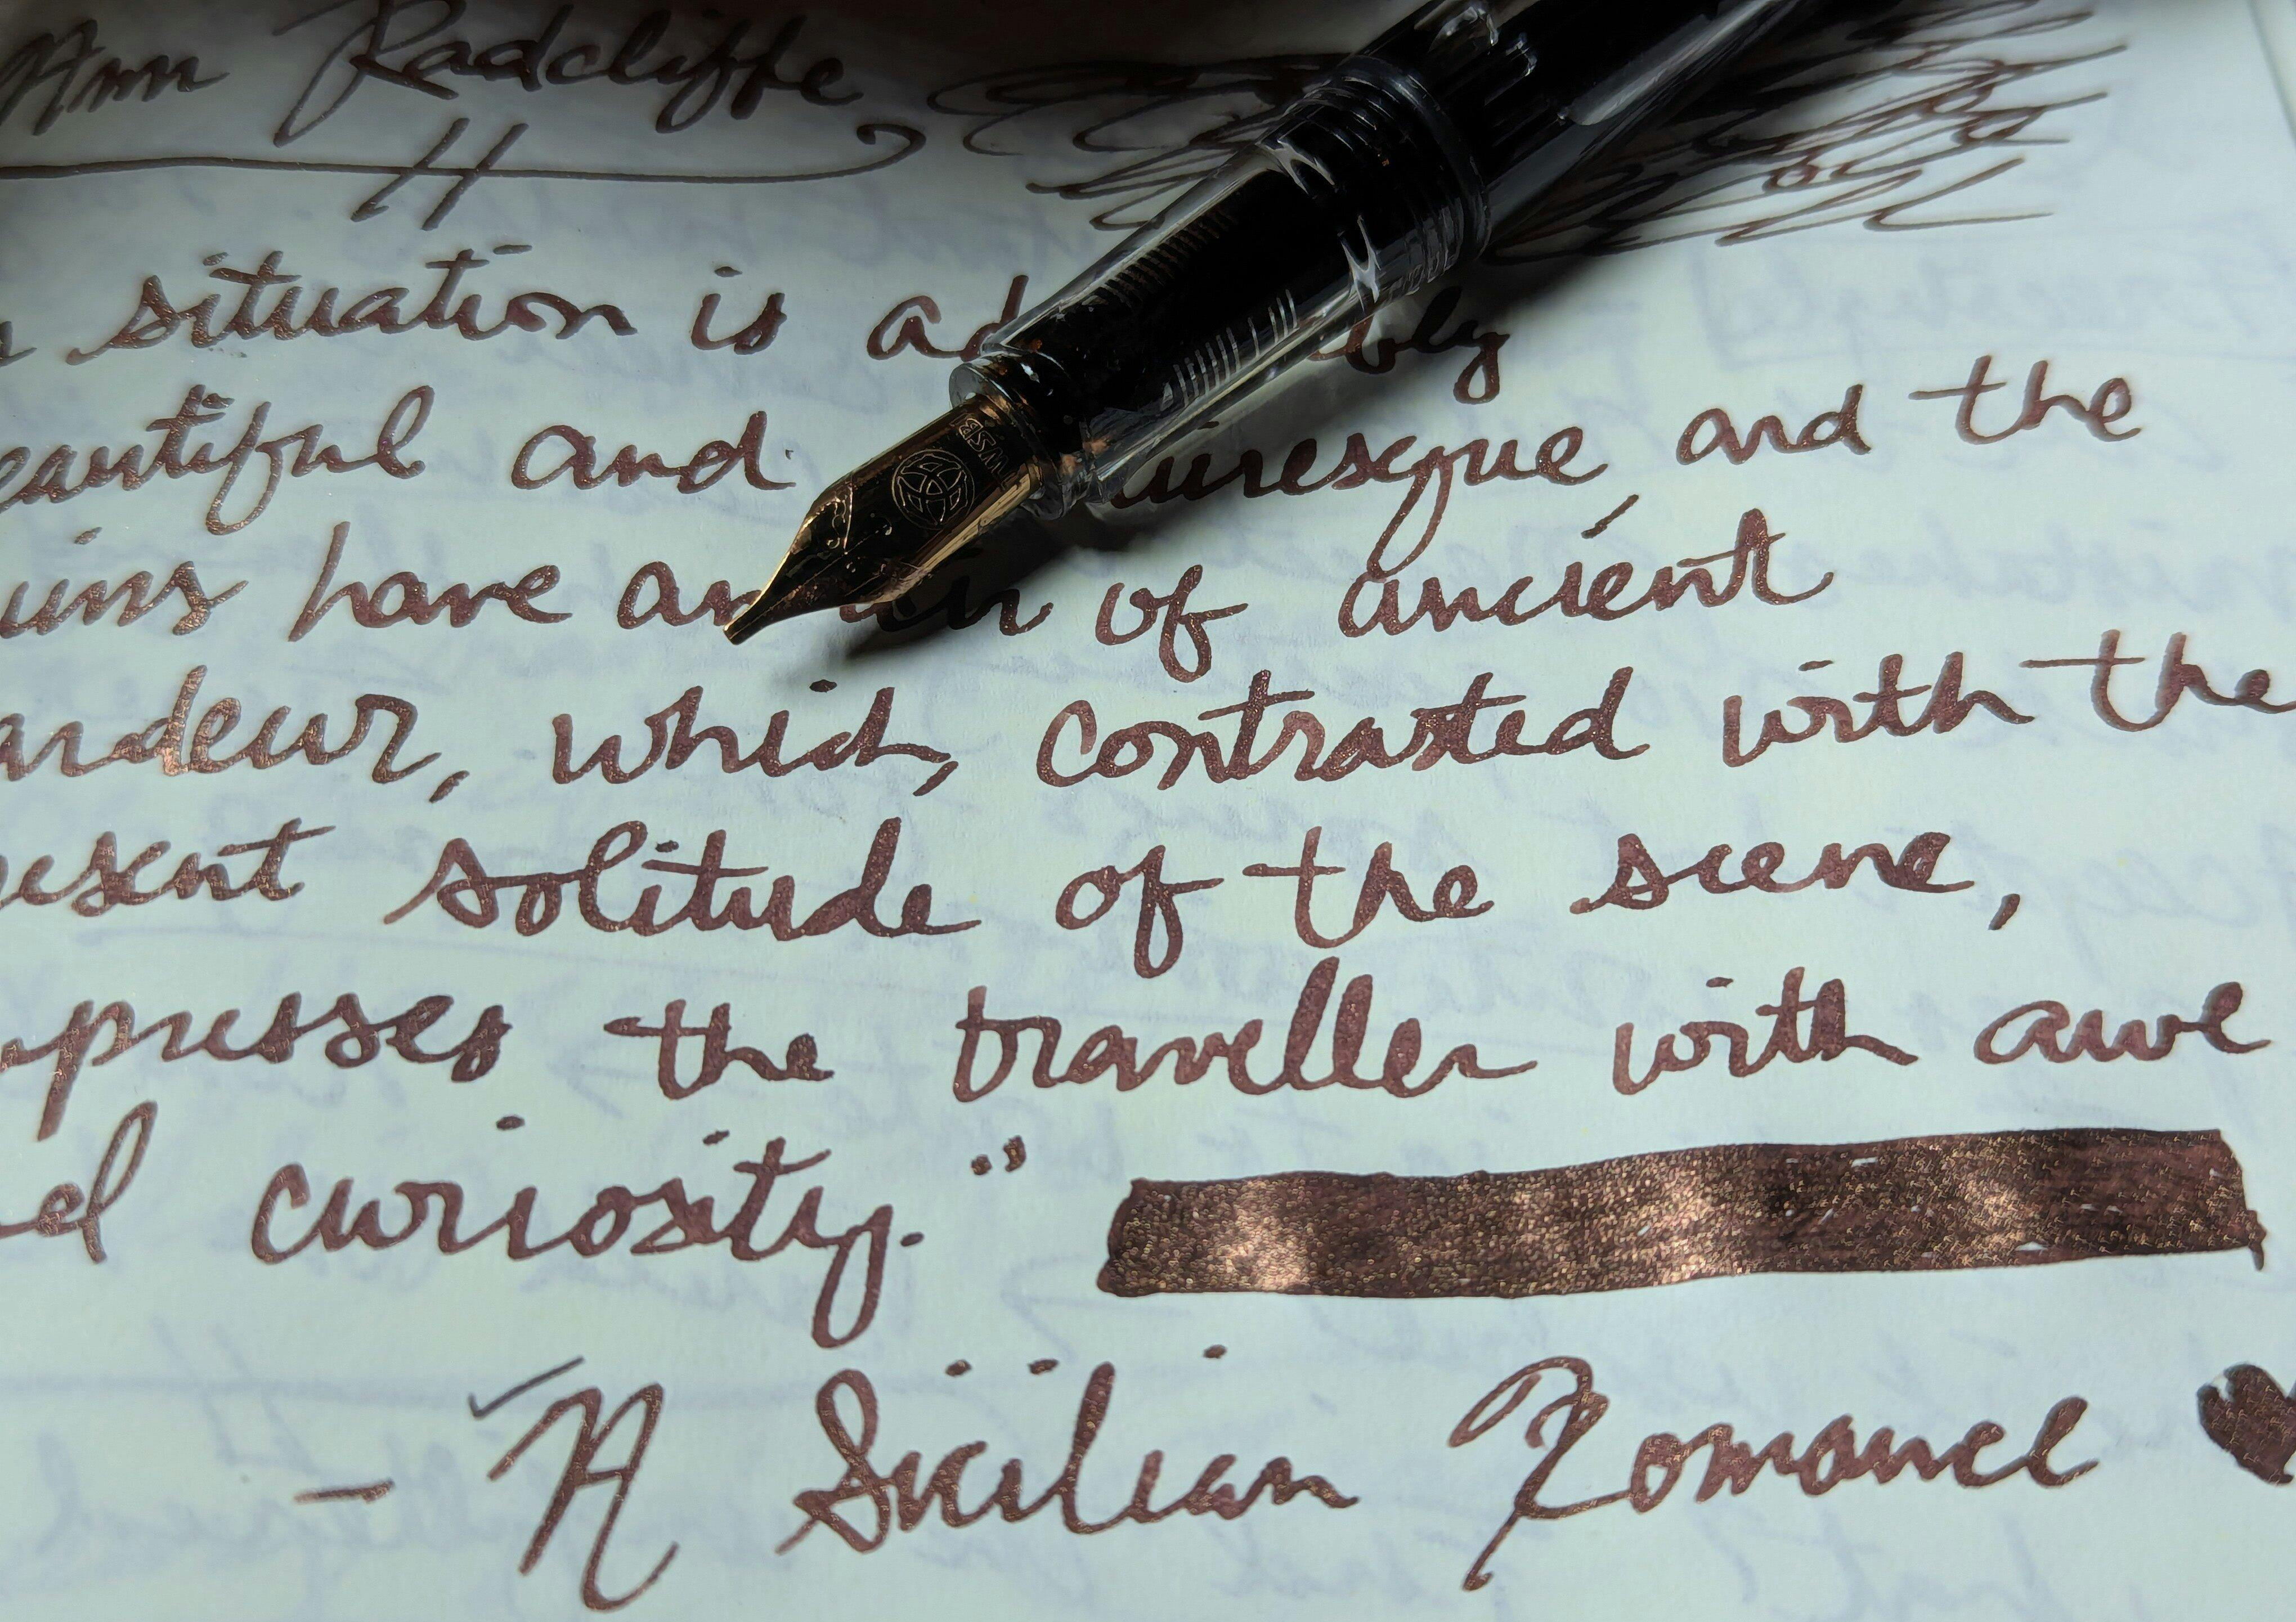 Ann Radcliffe
situation is ad bly
eautiful and uresque and the
uins have an air of ancient
andeur, which, contrasted with the
resent solitude of the scene,
mpresses the traveller with awe
d curiosity."
- A Sicilian Romance